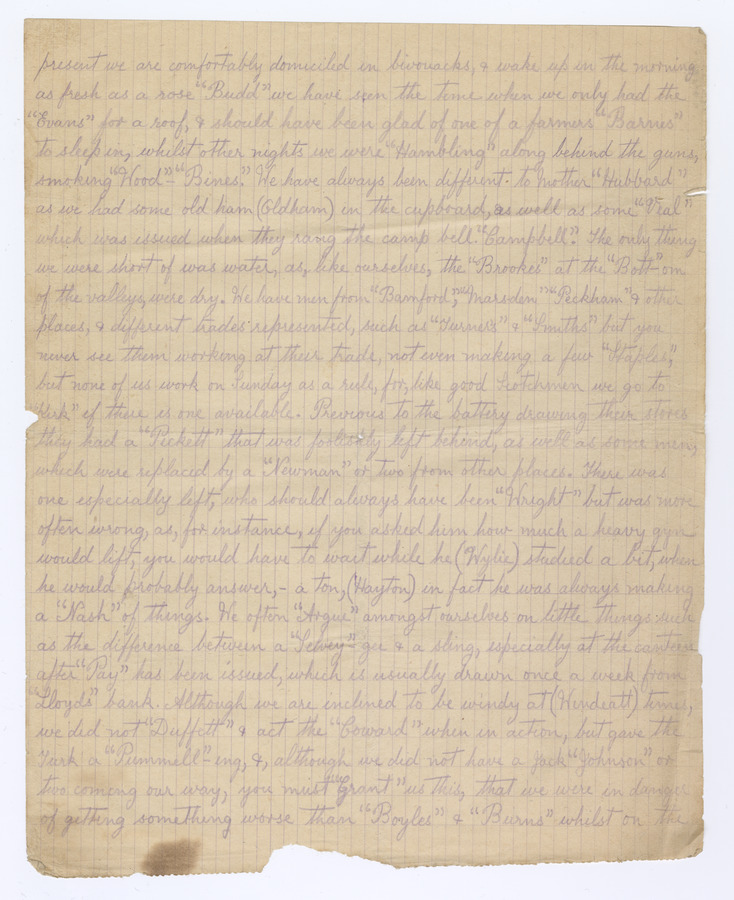 present we are comfortably domiciled in bivouacks, & wake up in the morning
as fresh as a rose "Budd" we have seen the time when we only had the
"Evans" for a roof, & should have been glad of one of a farmers "Barnes"
to sleep in, whilst other nights we were "Hambling" along behind the guns,
smoking "Wood" - "Bines". We have always been different to Mother "Hubbard"
as we had some old ham (Oldham) in the cupboard, as well as some "Veal"
which was issued when they rang the camp bell "Campbell". The only thing
we were short of was water, as, like ourselves, the "Brookes" at the "Bott"-om
of the valleys, were dry. We have men from "Bamford", "Marsden" "Peckham" & other
places, & different trades represented, such as "Turners" & "Smiths" but you
never see them working at their trade, not even making a few "Staples",
but none of us work on Sunday as a rule, for, like good Scotchmen we go to
"Kirk" if there is one available. Previous to the battery drawing their stores
they had a "Pickett" that was foolishly left behind, as well as some men,
which were replaced by a "Newman" or two from other places. There was
one especially left, who should always have been "Wright" but was more
often wrong, as, for instance, if you asked him how much a heavy gyn
would lift, you would have to wait while he (Wylie) studied a bit, when
he would probably answer, - a ton, (Hayton) in fact he was always making
a "Nash" of things. We often "Argue" amongst ourselves on little things such
as the difference between a "Selvey"-gee & a sling, especially at the canteen
after "Pay" has been issued, which is usually drawn once a week from
"Lloyds" bank. Although we are inclined to be windy at (Windeatt) times,
we did not "Duffett" & act the "Coward" when in action, but gave the
Turk a "Pummell"-ing, &, although we did not have a Jack "Johnson" or
two coming our way, you must "grant" us this, that we were in danger
of getting something worse than "Boyles" & "Burns" whilst on the